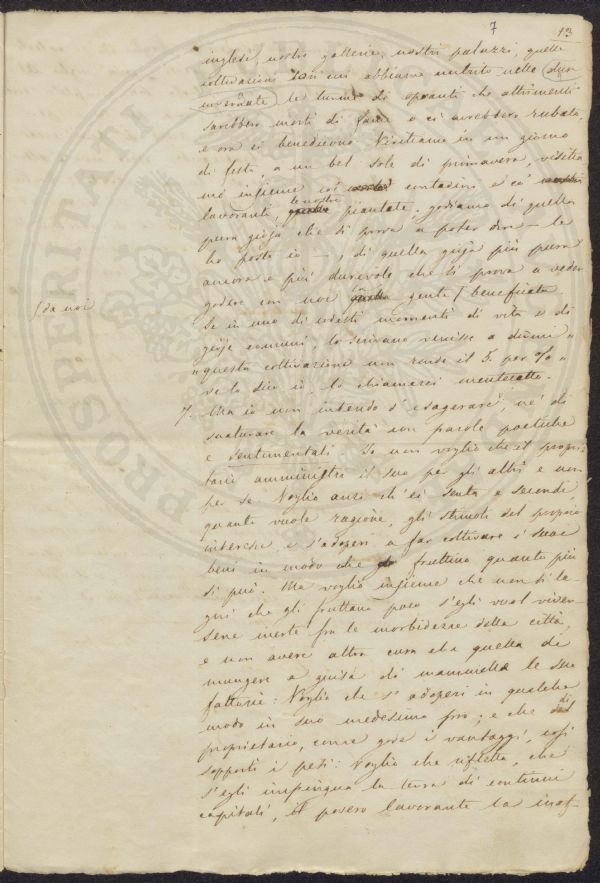 7 13
inglesi, nostre gallerie, nostri palazzi, quelle
coltivazioni con cui abbiamo nutrito nelle dure
invernate le turme di operanti che altrimenti
sarebbero morti di fame o ci avrebbero rubato,
e ora ci benedicono. Visitiamo in un giorno
di festa, a un bel sole di primavera, visitia
mo insieme coi contadini e co'
lavoranti, le nostre piantate; godiamo di quella
pura gioja che si prova a poter dire — le
ho poste io —, di quella gioja più pura
ancora e più durevole che si prova a veder
godere con noi la gente / beneficata
/ da noi
Se in uno di codesti momenti di vita e di
gioje comuni, lo scrivano venisse a dirmi "
" questa coltivazione non rende il 5. per % "
ve lo dico io, lo chiamerei mentecatto.
7. Ma io non intendo d'esagerare, nè di
snaturare la verità con parole poetiche
e sentimentali. Io non voglio che il proprie
tario amministri il suo per gli altri e non
per se. Voglio anzi ch'ei senta e secondi,
quanto vuole ragione, gli stimoli del proprio
interesse, e s'adoperi a far coltivare i suoi
beni in modo che fruttino quanto più
si può. Ma voglio insieme che non si la-
gni che gli fruttano poco s'egli vuol viver-
sene inerte fra le morbidezze della città,
e non avere altra cura che quella di
mungere a guisa di mammelle le sue
fattorie: Voglio che s'adoperi in qualche
modo in suo medesimo pro; e che di
proprietario, come gode i vantaggi, così
sopporti i pesi: Voglio che rifletta, che
s'egli impingua la terra di continui
capitali, il povero lavorante la inaf-